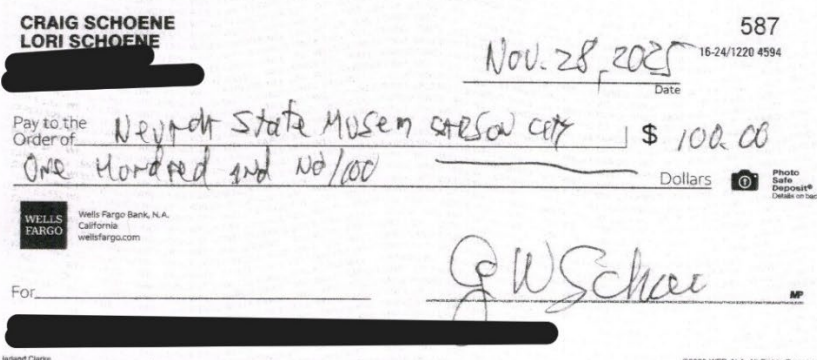 CRAIG SCHOENE
LORI SCHOENE
587
16-24/1220 4594
Nov. 28, 2025
Date
Pay to the
Order of Nevada State Musem CARSON CITY $ 100.00
One Hundred and No/100 Dollars
Photo
Safe
Deposit®
Details on back
WELLS
FARGO
Wells Fargo Bank, N.A.
California
wellsfargo.com
For
MP
Harland Clarke